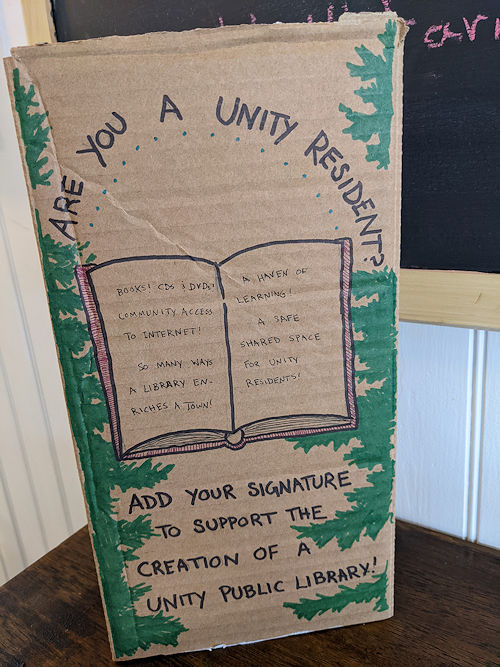 ARE YOU A UNITY RESIDENT?
BOOKS! CDs & DVDs!
COMMUNITY ACCESS
TO INTERNET!
SO MANY WAYS
A LIBRARY EN-
RICHES A TOWN!
A HAVEN OF
LEARNING!
A SAFE
SHARED SPACE
FOR UNITY
RESIDENTS!
ADD YOUR SIGNATURE
TO SUPPORT THE
CREATION OF A
UNITY PUBLIC LIBRARY!